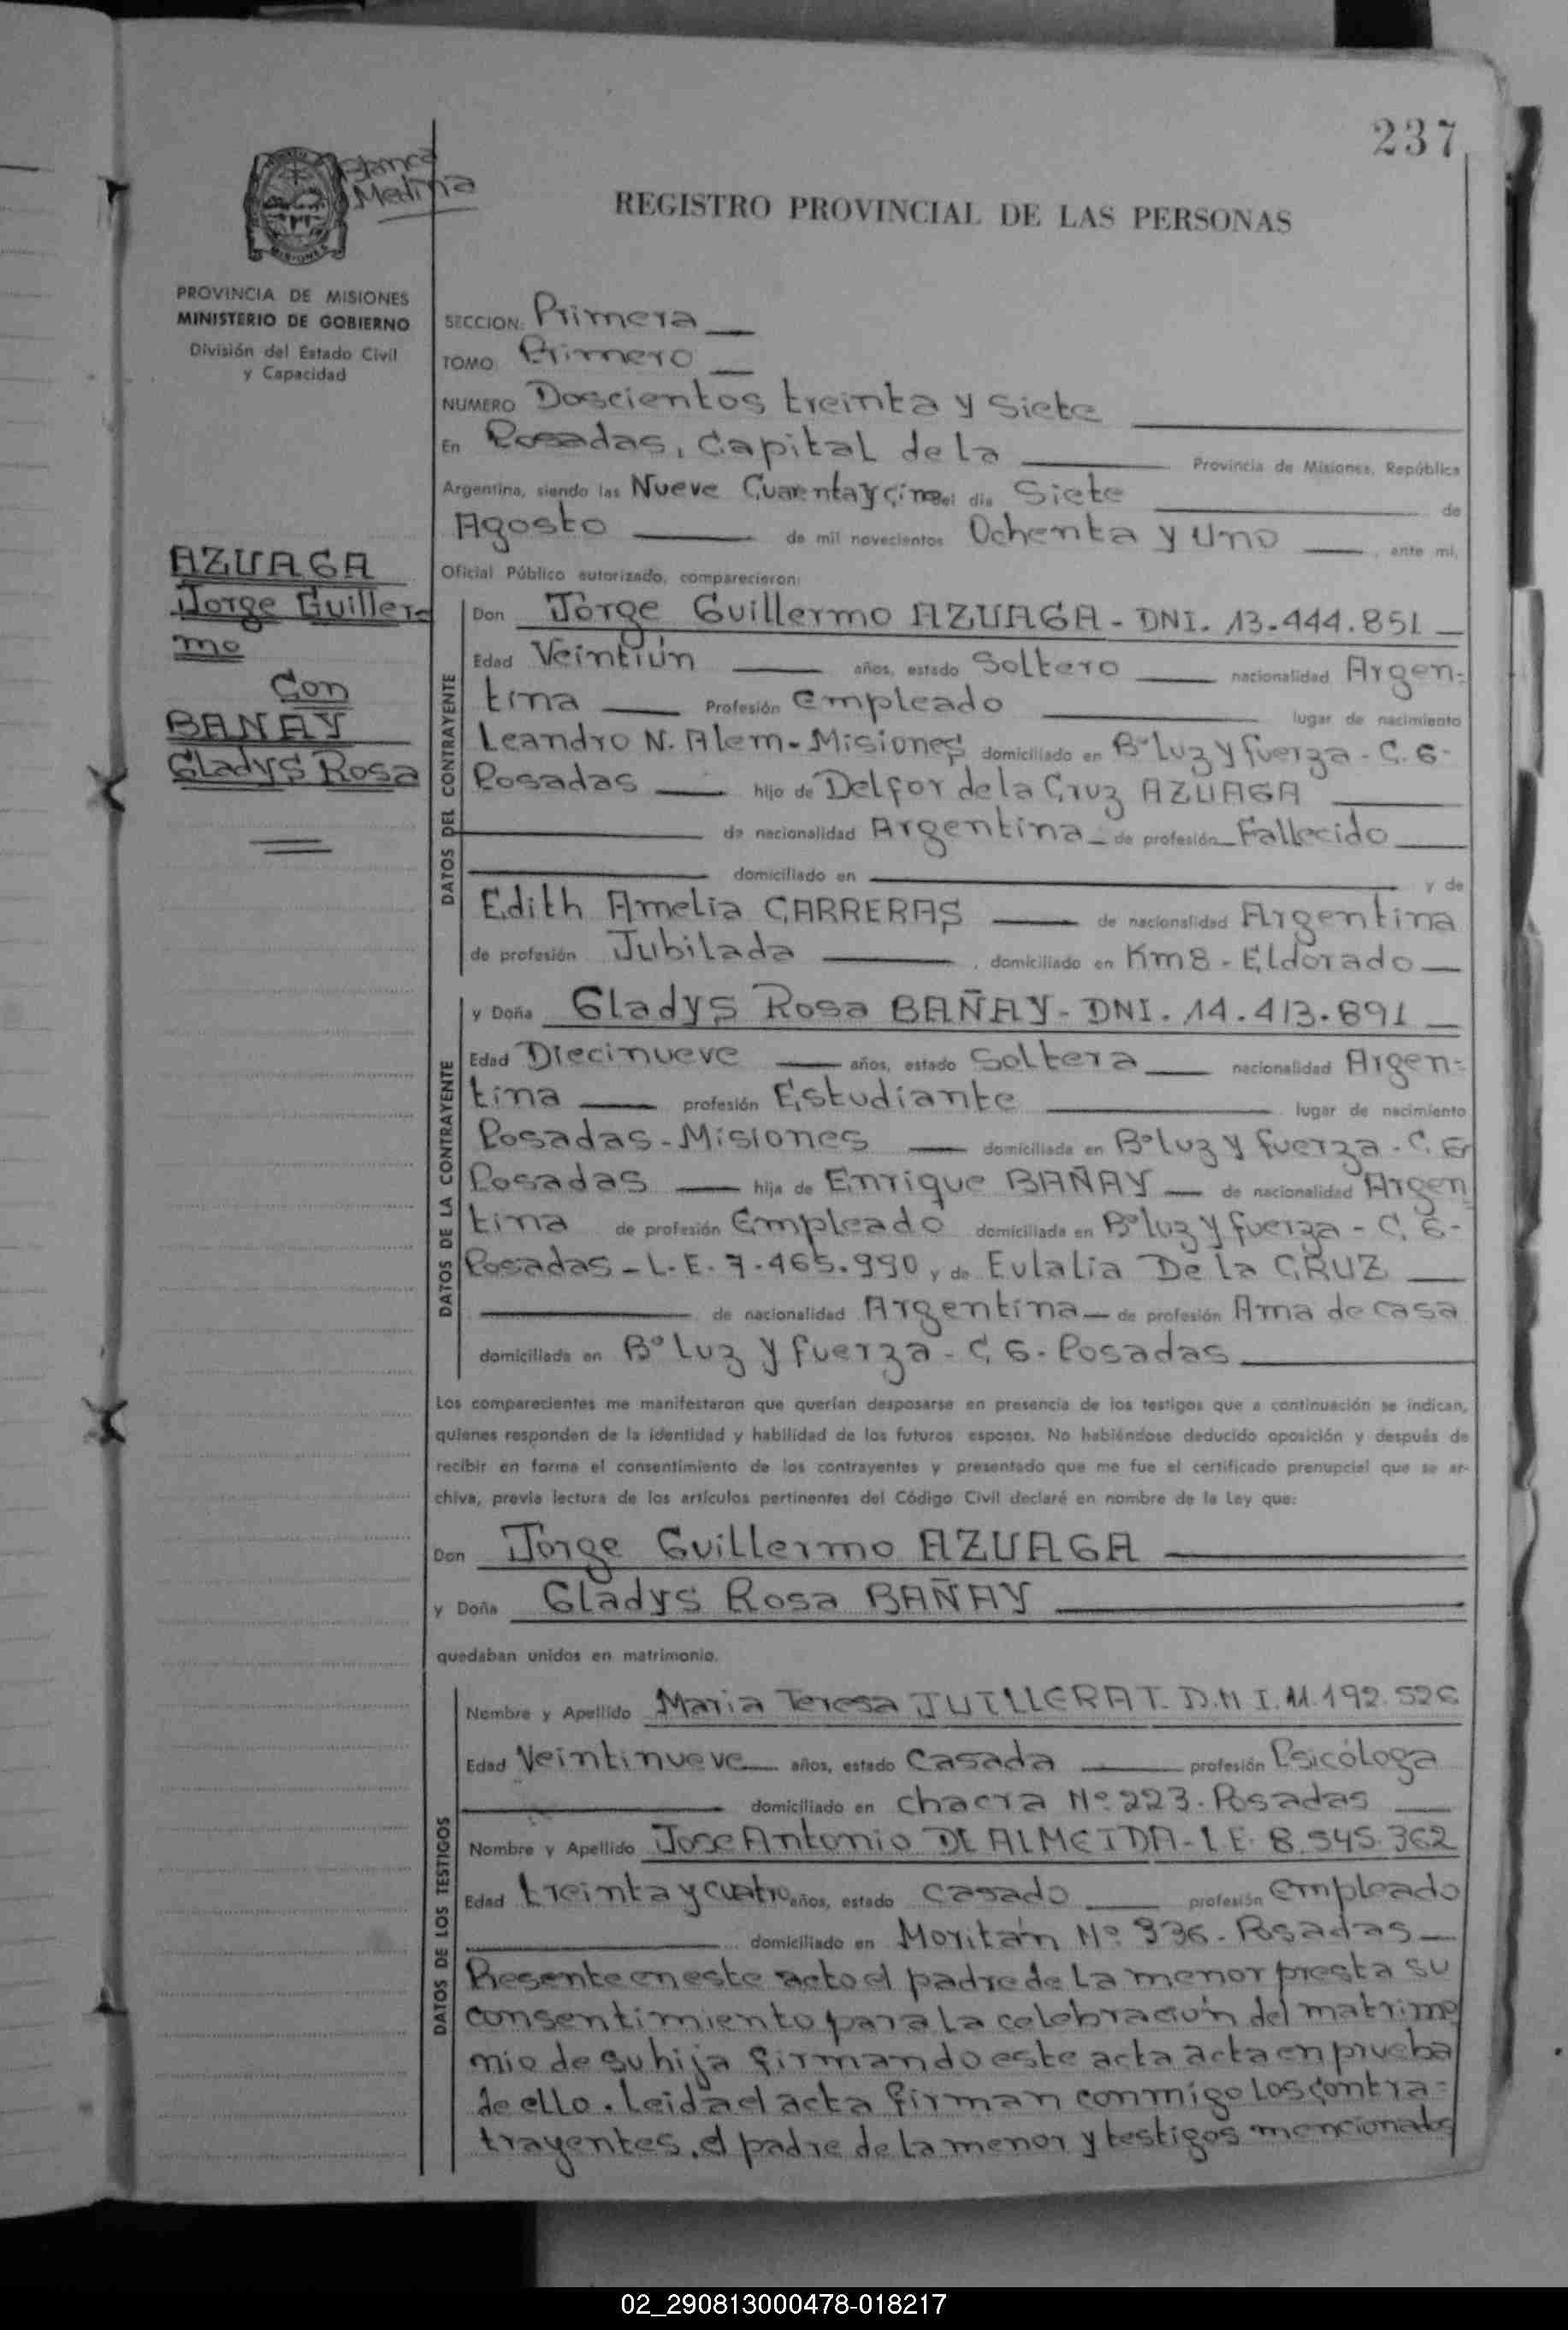 237
Blanca
Medina
REGISTRO PROVINCIAL DE LAS PERSONAS
MISIONES
PROVINCIA DE MISIONES
MINISTERIO DE GOBIERNO
División del Estado Civil
y Capacidad
AZUAGA
Jorge Guiller=
mo
Con
BANAY
Gladys Rosa
SECCION: Primera
TOMO: Primero
NUMERO Doscientos treinta y siete
En Posadas, Capital de la Provincia de Misiones, República
Argentina, siendo las Nueve Cuarenta y cinco del día Siete de
Agosto de mil novecientos Ochenta y Uno, ante mi,
Oficial Público autorizado, comparecieron:
DATOS DEL CONTRAYENTE
Don Jorge Guillermo AZUAGA - DNI. 13.444.851
Edad Veintiún años, estado Soltero nacionalidad Argen=
tina Profesión Empleado lugar de nacimiento
Leandro N. Alem - Misiones domiciliado en Bº Luz y fuerza - C. 6 -
Posadas hijo de Delfor de la Cruz AZUAGA
de nacionalidad Argentina - de profesión Fallecido
domiciliado en y de
Edith Amelia CARRERAS de nacionalidad Argentina
de profesión Jubilada, domiciliado en Km 8 - Eldorado
DATOS DE LA CONTRAYENTE
y Doña Gladys Rosa BAÑAY - DNI. 14.413.891
Edad Diecinueve años, estado Soltera nacionalidad Argen=
tina profesión Estudiante lugar de nacimiento
Posadas - Misiones domiciliada en Bº Luz y fuerza - C. 6
Posadas hija de Enrique BAÑAY de nacionalidad Argen
tina de profesión Empleado domiciliada en Bº luz y fuerza - C. 6 -
Posadas - L.E. 7.465.990 y de Eulalia De la CRUZ
de nacionalidad Argentina - de profesión Ama de casa
domiciliada en Bº Luz y fuerza - C. 6 - Posadas
Los comparecientes me manifestaron que querían desposarse en presencia de los testigos que a continuación se indican,
quienes responden de la identidad y habilidad de los futuros esposos. No habiéndose deducido oposición y después de
recibir en forma el consentimiento de los contrayentes y presentado que me fue el certificado prenupcial que se ar-
chiva, previa lectura de los artículos pertinentes del Código Civil declaré en nombre de la Ley que:
Don Jorge Guillermo AZUAGA
y Doña Gladys Rosa BAÑAY
quedaban unidos en matrimonio.
DATOS DE LOS TESTIGOS
Nombre y Apellido Maria Teresa JUILLERAT. D.N.I. 11.192.526
Edad Veintinueve años, estado Casada profesión Psicóloga
domiciliado en chacra Nº 223 - Posadas
Nombre y Apellido Jose Antonio DE ALMEIDA - L.E. 8.545.362
Edad treinta y cuatro años, estado casado profesión empleado
domiciliado en Moritán Nº 336 - Posadas
Presente en este acto el padre de la menor presta su
consentimiento para la celebración del matrimo
nio de su hija firmando este acta acta en prueba
de ello. Leida el acta firman conmigo los contra=
trayentes, el padre de la menor y testigos mencionados
02_290813000478-018217